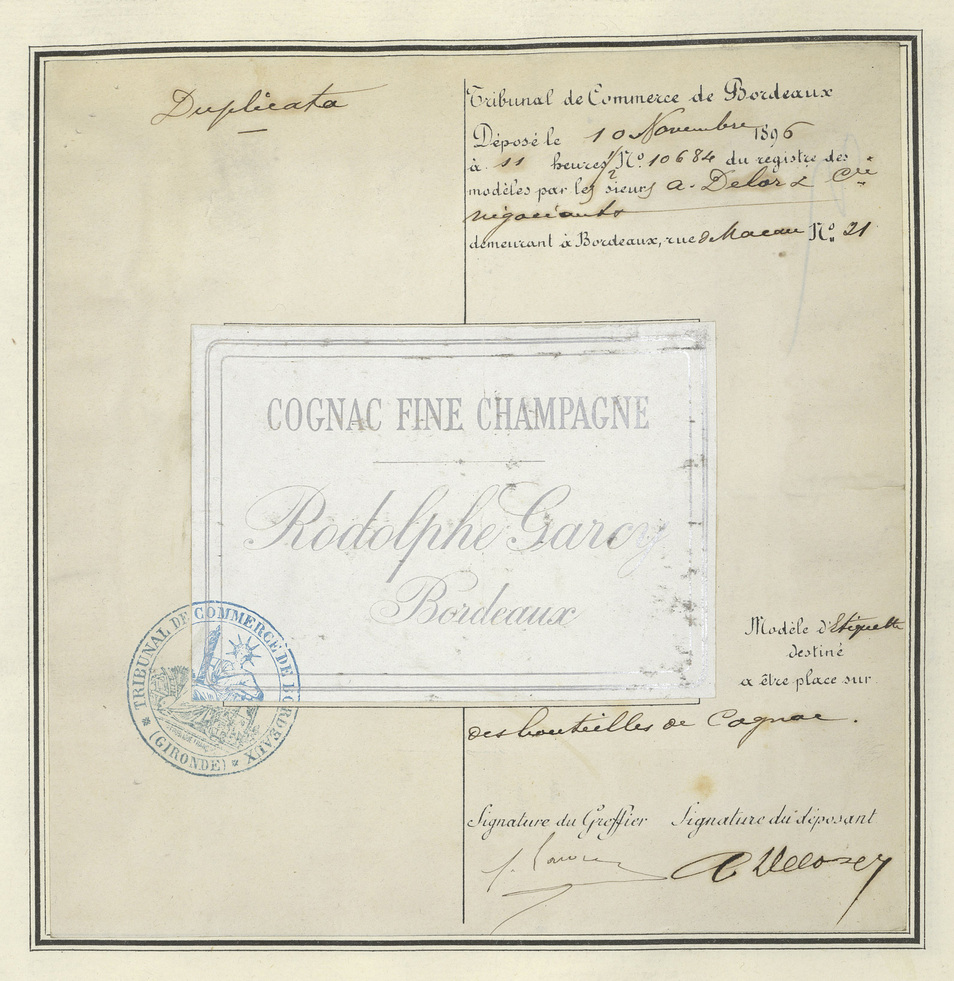 Duplicata
Tribunal de Commerce de Bordeaux
Déposé le 10 Novembre 1896
à 11 heures 1/2 No. 10684 du registre des
modèles par les sieurs A. Delor & Cie
négociants
demeurant à Bordeaux, rue de Macau No. 21
COGNAC FINE CHAMPAGNE
Rodolphe Garcy
Bordeaux
TRIBUNAL DE COMMERCE DE BORDEAUX
(GIRONDE)
Modèle d'Etiquette
destiné
a être place sur
des bouteilles de Cognac.
Signature du Greffier Signature du déposant